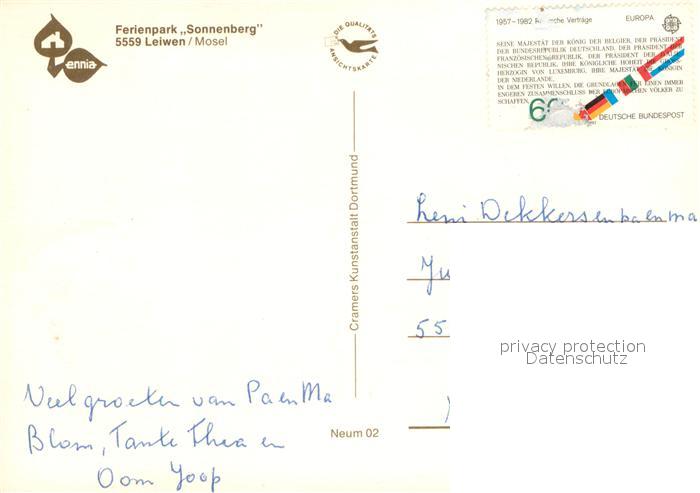 Ferienpark „Sonnenberg"
5559 Leiwen / Mosel
ennia
DIE QUALITÄTS
ANSICHTSKARTE
1957–1982 Römische Verträge EUROPA
SEINE MAJESTÄT DER KÖNIG DER BELGIER, DER PRÄSIDENT
DER BUNDESREPUBLIK DEUTSCHLAND, DER PRÄSIDENT DER
FRANZÖSISCHEN REPUBLIK, DER PRÄSIDENT DER
NISCHEN REPUBLIK, IHRE KÖNIGLICHE HOHEIT DIE
HERZOGIN VON LUXEMBURG, IHRE MAJESTÄT DIE KÖNIGIN
DER NIEDERLANDE,
IN DEM FESTEN WILLEN, DIE GRUNDLAGEN FÜR EINEN IMMER
ENGEREN ZUSAMMENSCHLUSS DER EUROPÄISCHEN VÖLKER ZU
SCHAFFEN,
60
DEUTSCHE BUNDESPOST
Cramers Kunstanstalt Dortmund
Leni Dekkersen pa en ma
Ju
55
privacy protection
Datenschutz
Veel groeten van Pa en Ma
Blom, Tante Thea en
Oom Joop
Neum 02